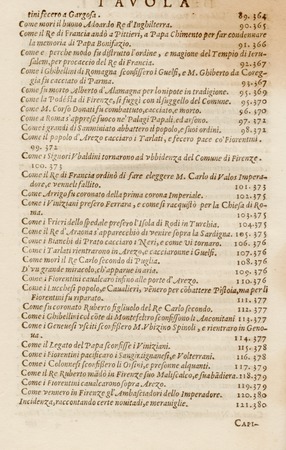 TAVOLA
tini fecero a Gargosa. 89.364
Come morì il buono Adoardo Re d'Inghilterra. 90.365
Come il Re di Francia andò a Pittieri, a Papa Chimento per far condennare
la memoria di Papa Bonifazio. 91.366
Come e perche modo fu distrutto l'ordine, e magione del Tempio di Ieru-
salem, per procaccio del Re di Francia. 92.367
Come i Ghibellini di Romagna sconfissero i Guelfi, e M. Ghiberto da Coreg-
gia fu cacciato di Parma. 93.365
Come fu morto Alberto d'Alamagna per lo nipote in tradigione. 94.369
Come la Podestà di Firenze, si fuggì con il suggello del Comune. 95.370
Come M. Corso Donati fu combattuto, cacciato, e morto. 96.370
Come a Roma s'apprese fuoco ne' Palagi Papali, ed arseno. 97.372
Come i grandi di Sanminiato abbattero il popolo, e suoi ordini. 98.372
Come il popolo d'Arezo cacciaro i Tarlati, e fecero pace co' Fiorentini
99.372
Come i Signori Vbaldini tornarono ad vbbidenza del Comune di Firenze
100.373
Come il Re di Francia ordinò di fare eleggere M. Carlo di Valos Impera-
dore, e vennelì fallito. 101.373
Come Arrigo fu coronato della prima corona Imperiale. 102.375
Come i Viniziani presero Ferrara, e come si racquistò per la Chiesa di Ro-
ma. 103.375
Come i Frieri dello spedale presero l'Isola di Rodi in Turchia. 104.375
Come il Re d'Araona s'apparecchiò di venire sopra la Sardigna. 105.375
Come i Bianchi di Prato cacciaro i Neri, e come vi tornaro. 106.375
Come i Tarlati rientrarono in Arezo, e cacciaronne i Guelfi. 107.375
Come morì il Re Carlo secondo di Puglia. 108.375
D'vu grande miracolo, ch'apparue in aria. 109.375
Come i Fiorentini caualcaro infino alle porte d'Arezo. 110.377
Come i Lucchesi popolo, e Caualieri, vènero per cobattere Pistoia, ma per li
Fiorentini fu riparato. 111.377
Come fu coronato Ruberto figliuolo del Re Carlo secondo. 112.377
Come i Ghibellini ed il côte di Montefeltro sconfissono li Anconitani 113.377
Come i Genouesi vsciti sconfissero M. Vbizino Spinoli, e rientraro in Geno-
ua. 114.377
Come il Legato del Papa sconfisse i Viniziani. 115.378
Come i Fiorentini pacificaro i Sangimignanesi, e Volterrani. 116.378
Come i Colonnesi sconfissero li Orsini, e presonne alquanti. 117.378
Come il Re Ruberto mãdò in Firenze suo Maliscalco, e sua bãdiera. 118.379
Come i Fiorentini caualcarono sopra Arezo. 119.379
Come vennero in Firenze gl'Ambasciadori dello Imperadore. 120.380
Incidenza, raccontando certe nouitadi, e merauiglie. 121.380
CAPI-